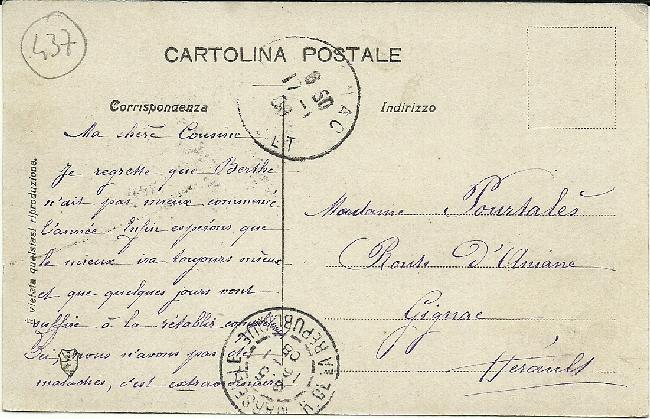 437
CARTOLINA POSTALE
Corrispondenza
Indirizzo
Ma chère Cousine
Je regrette que Berthe
n'ait pas mieux commencé
l'année. Enfin espérons que
le mieux ira toujours mieux
et que quelques jours vont
suffire à la rétablir
nous n'avons pas été
malades, c'est extraordinaire
Madame Pourtalès
Route D'Aniane
Gignac
Hérault
È vietata qualsiasi riproduzione.
GNAC
LT
LA REPUBLIQUE